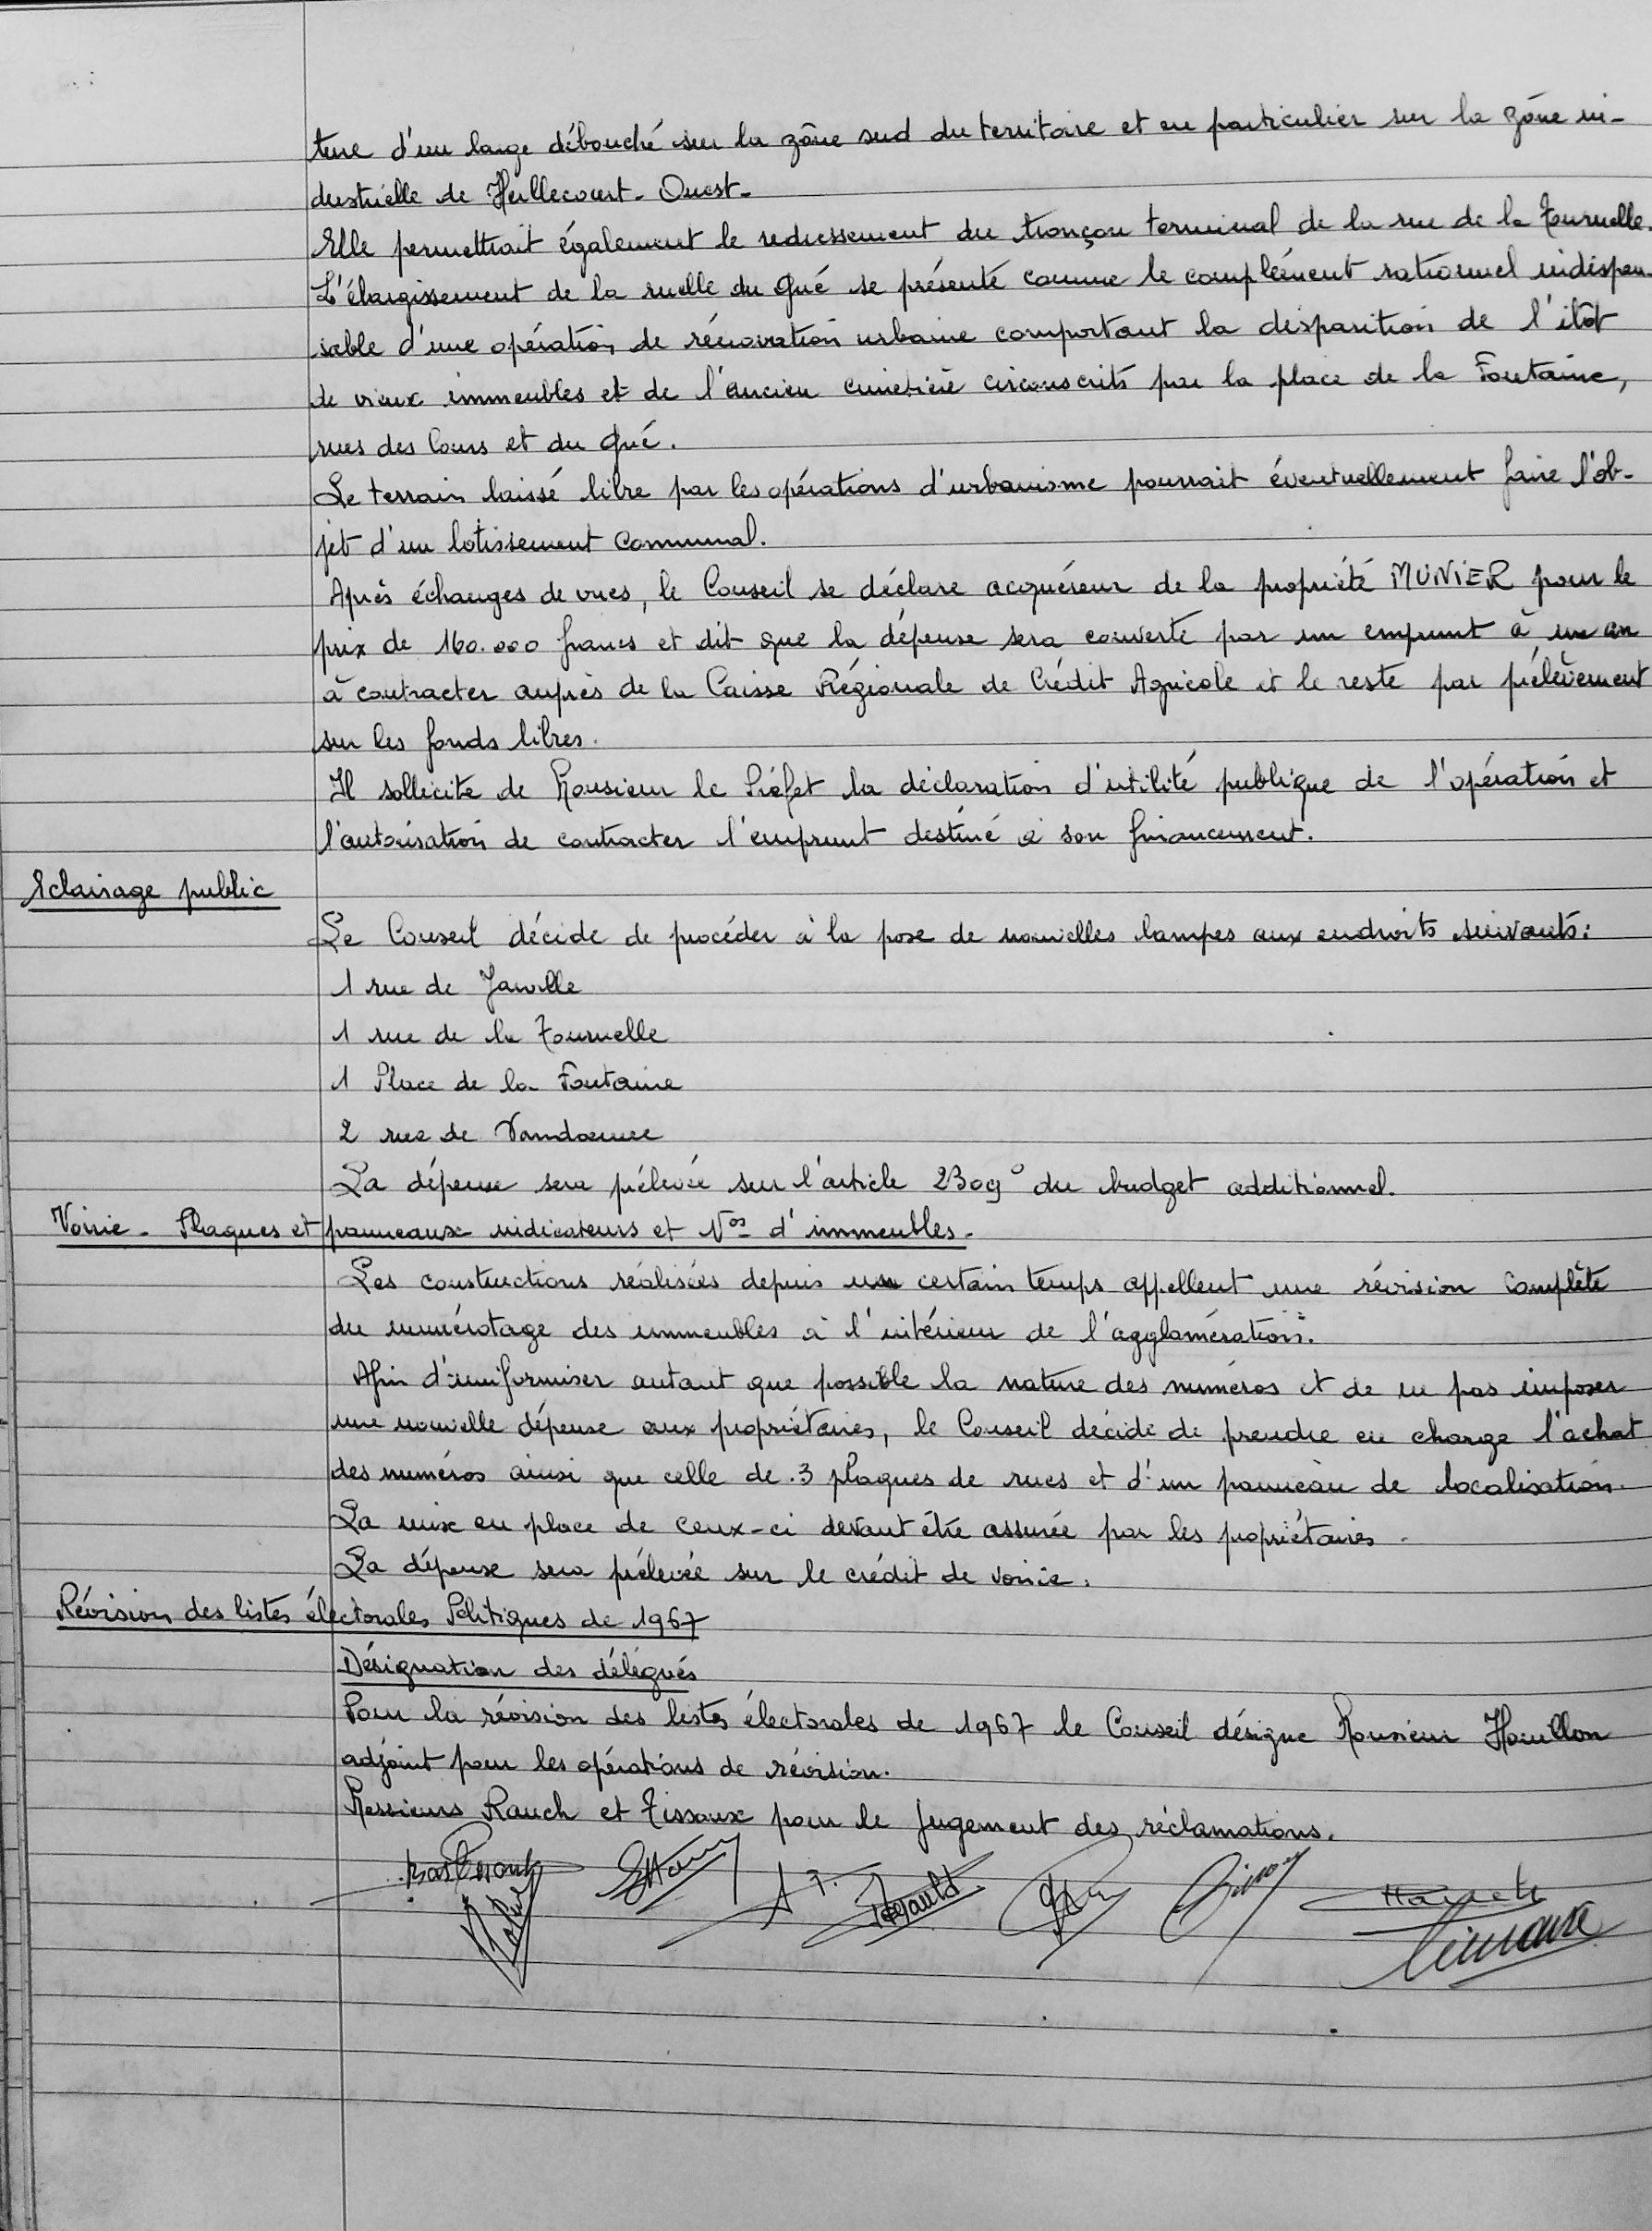 ture d'un large débouché sur la zône sud du territoire et en particulier sur la zône in-
dustrielle de Heillecourt-Ouest-
Elle permettrait également le redressement du tronçon terminal de la rue de la Tournelle.
L'élargissement de la ruelle du Gué se présente comme le complément rationnel indispen-
sable d'une opération de rénovation urbaine comportant la disparition de l'îlot
de vieux immeubles et de l'ancien cimetière circonscrits par la place de la Fontaine,
rues des Cours et du Gué.
Le terrain laissé libre par les opérations d'urbanisme pourrait éventuellement faire l'ob-
jet d'un lotissement communal.
Après échanges de vues, le Conseil se déclare acquéreur de la propriété MUNIER pour le
prix de 160.000 francs et dit que la dépense sera couverte par un emprunt à un an
à contracter auprès de la Caisse Régionale de Crédit Agricole et le reste par prélèvement
sur les fonds libres.
Il sollicite de Monsieur le Préfet la déclaration d'utilité publique de l'opération et
l'autorisation de contracter l'emprunt destiné à son financement.
Eclairage public
Le Conseil décide de procéder à la pose de nouvelles lampes aux endroits suivants:
1 rue de Jarville
1 rue de la Tournelle
1 Place de la Fontaine
2 rue de Vandoeuvre
La dépense sera prélevée sur l'article 230g° du budget additionnel.
Voirie - Plaques et panneaux indicateurs et Nos d'immeubles.
Les constructions réalisées depuis un certain temps appellent une révision complète
du numérotage des immeubles à l'intérieur de l'agglomération.
Afin d'uniformiser autant que possible la nature des numéros et de ne pas imposer
une nouvelle dépense aux propriétaires, le Conseil décide de prendre en charge l'achat
des numéros ainsi que celle de 3 plaques de rues et d'un panneau de localisation.
La mise en place de ceux-ci devant être assurée par les propriétaires.
La dépense sera prélevée sur le crédit de voirie.
Révision des listes électorales Politiques de 1967
Désignation des délégués
Pour la révision des listes électorales de 1967 le Conseil désigne Monsieur Houillon
adjoint pour les opérations de révision.
Messieurs Rauch et Tissoux pour le jugement des réclamations.